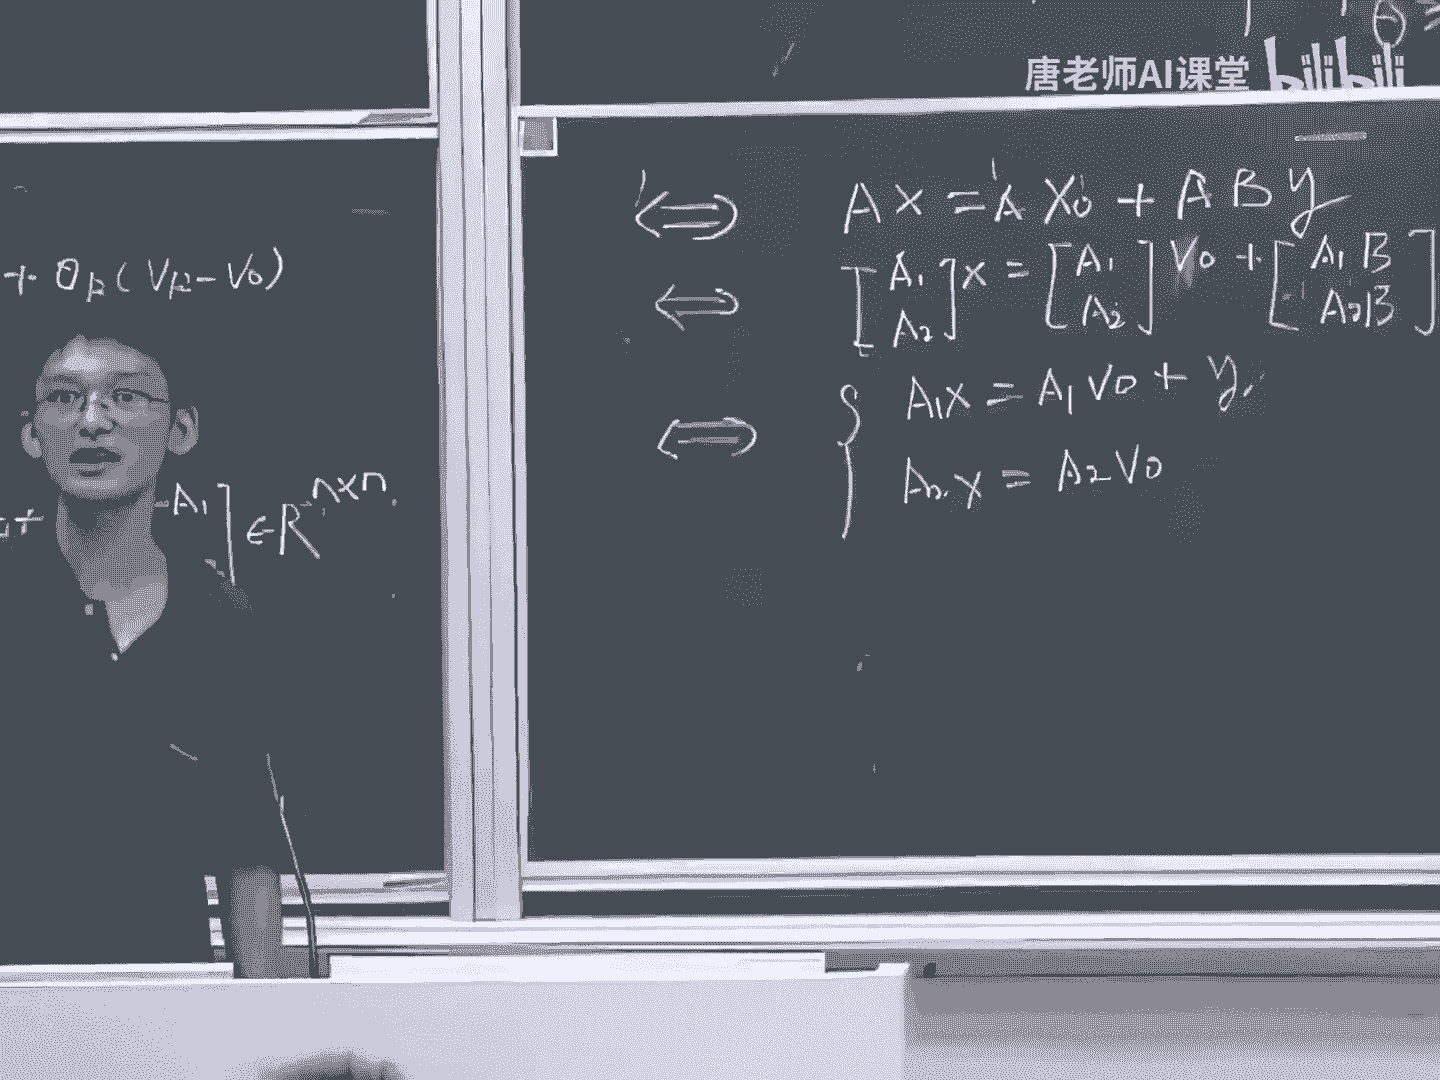 唐老师AI课堂 bilibili
+ θk(Vk-V0)
A1] ∈ R^n×n
⟺ AX = AX0 + ABy
⟺ [A1 A2] x = [A1 A2] V0 + [A1B A2B]
⟺ { A1x = A1V0 + y
A2x = A2V0